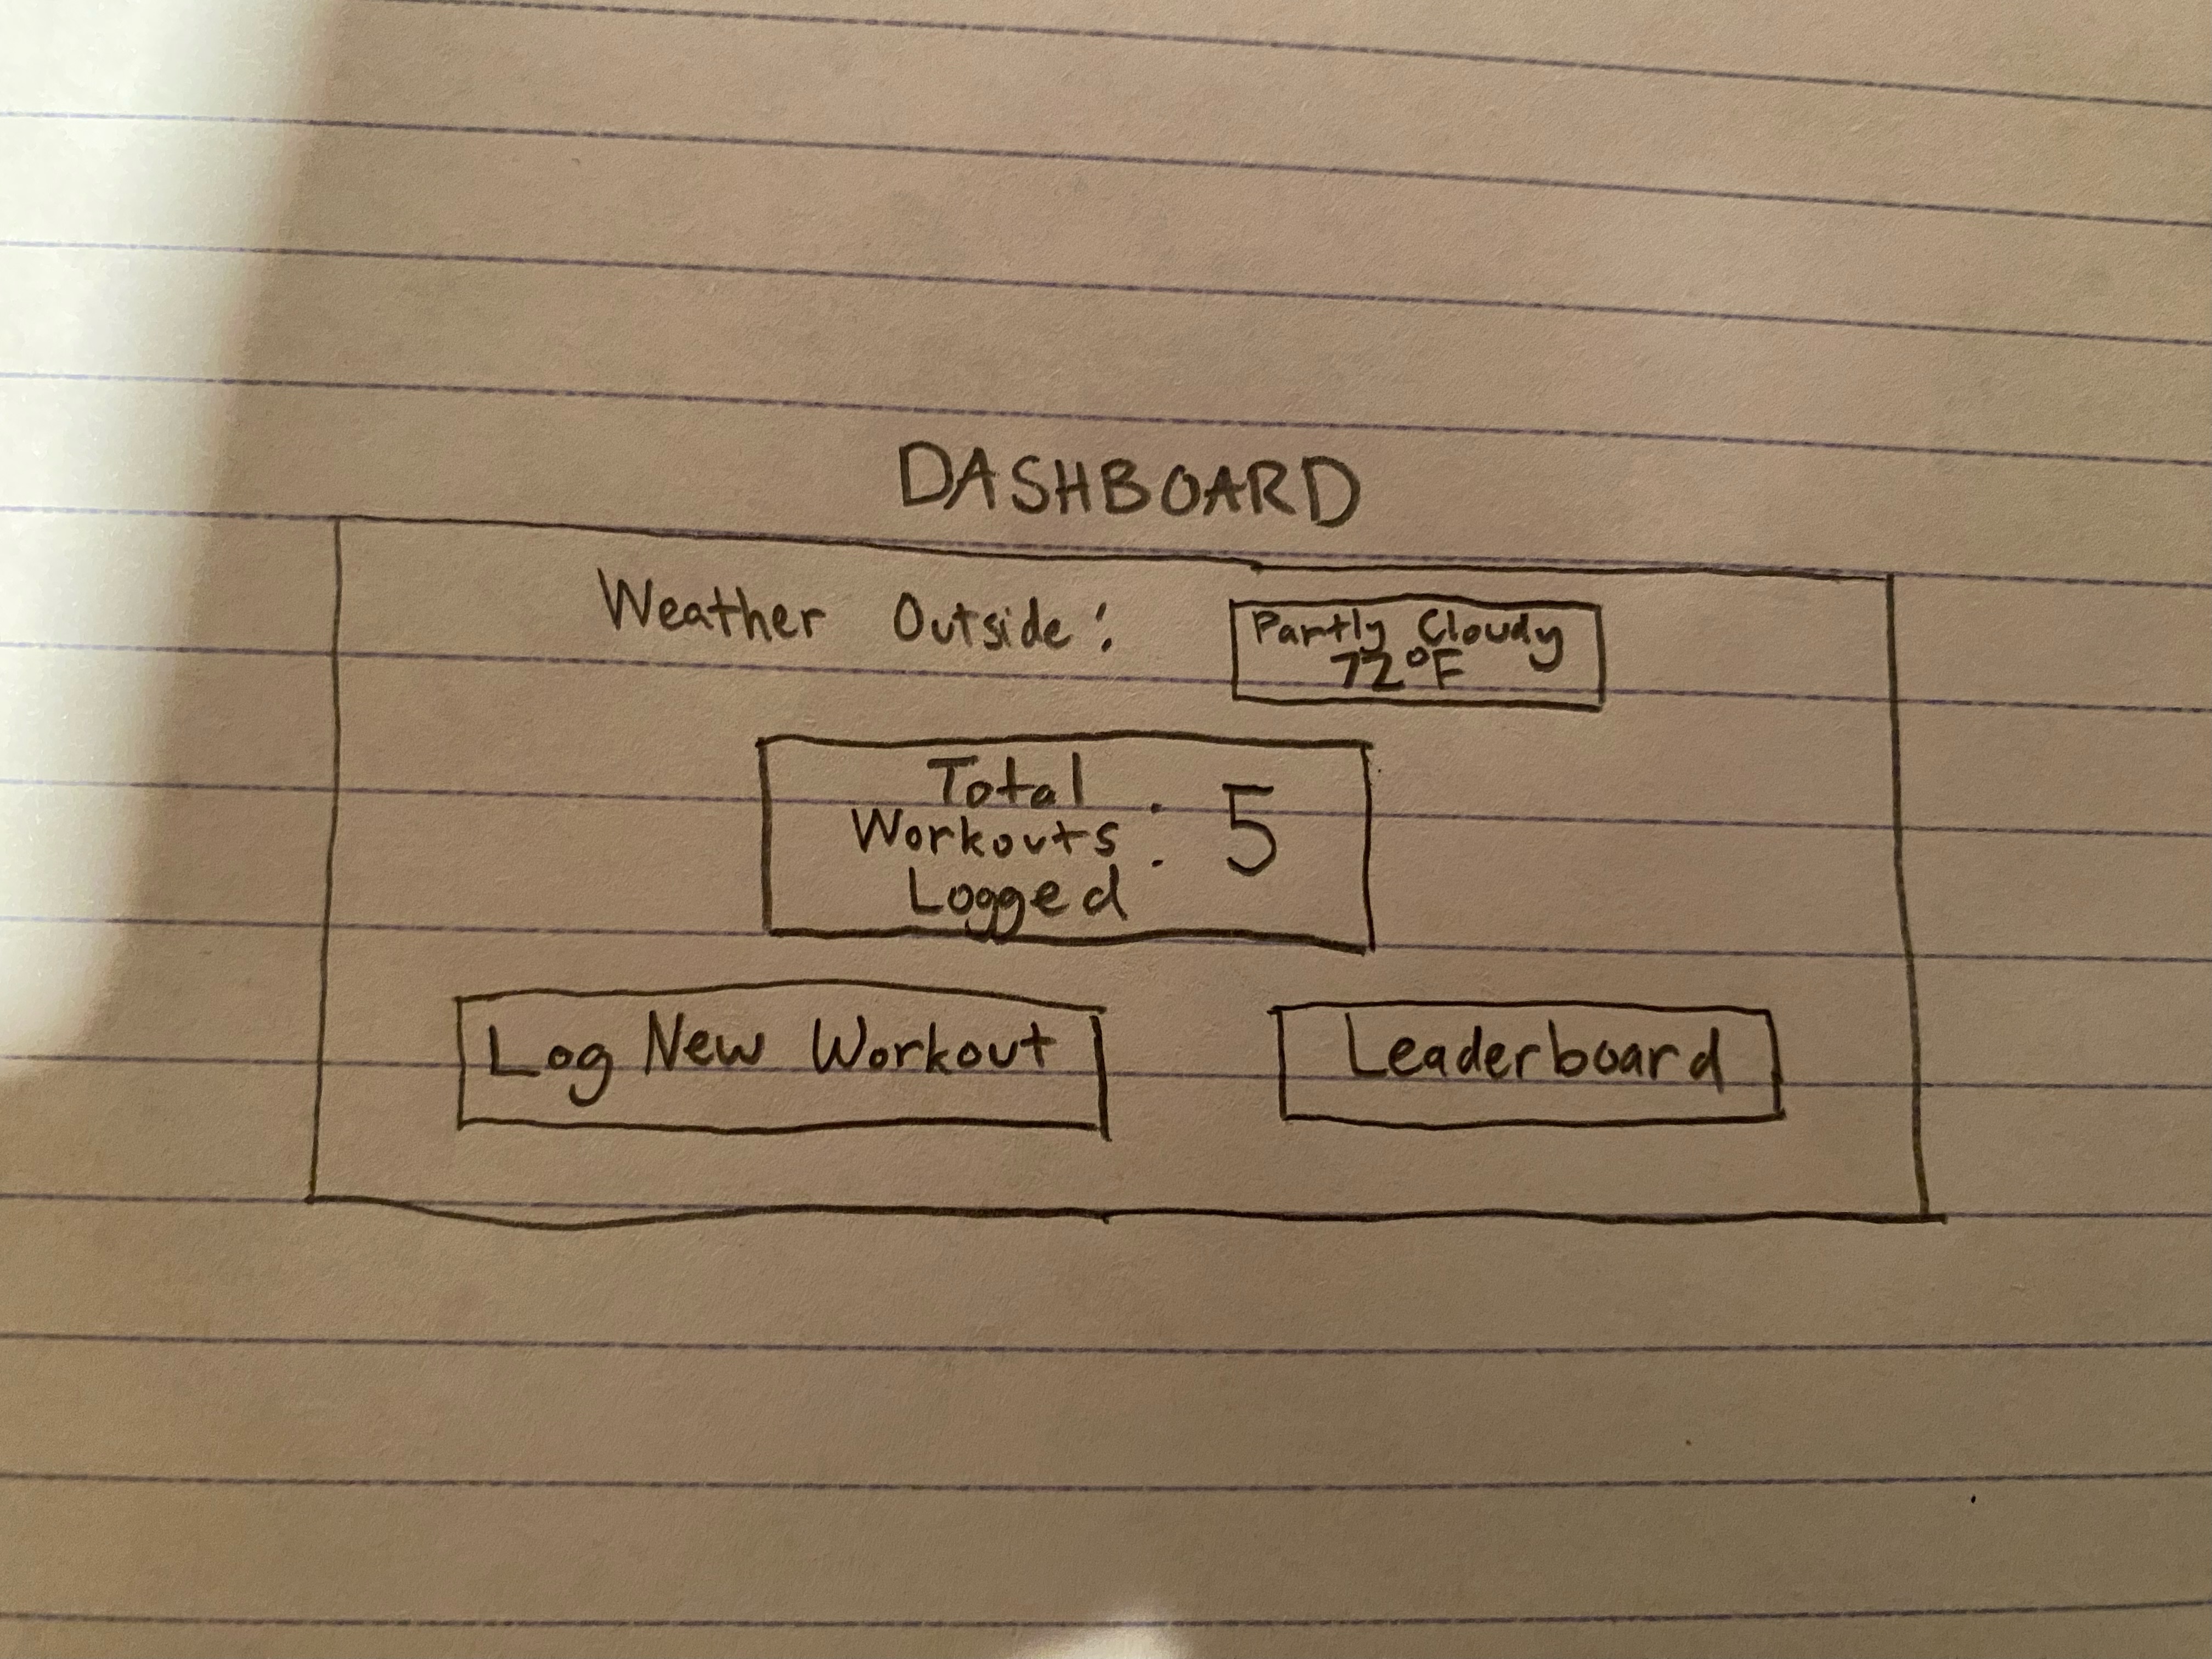 DASHBOARD
Weather Outside:
Partly Cloudy
72°F
Total
Workouts
Logged : 5
Log New Workout
Leaderboard